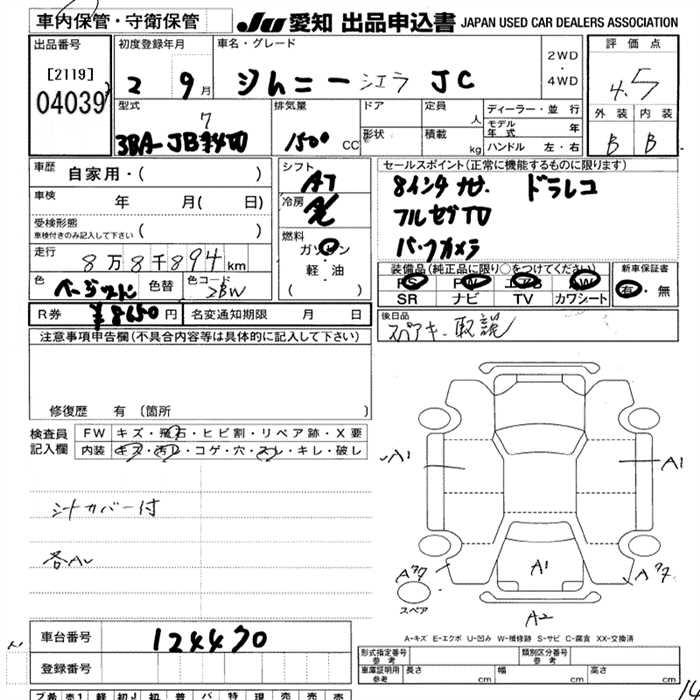 車内保管・守衛保管
JU 愛知 出品申込書 JAPAN USED CAR DEALERS ASSOCIATION
出品番号
[2119]
04039
初度登録年月
2 9月
車名・グレード
ジムニー シエラ JC
2WD
・
4WD
評価点
4.5
外装 内装
B B
型式
7
3BA-JB
排気量
1500 CC
ドア
形状
定員 人
積載 kg
ディーラー・並行
モデル年式 年
ハンドル 左・右
車歴 自家用・( )
車検 年 月( 日)
受検形態
車検付きのみ記入して下さい ( )
走行 8万8千894km
色 ベージュ 色替 色コード 2BW
R券 ¥8650円 名変通知期限 月 日
シフト AT
冷房
燃料 ガソリン
・
軽・油
( )
セールスポイント(正常に機能するものに限ります)
8インチナビ ドラレコ
フルセグTV
バックカメラ
装備品(純正品に限り○をつけてください)
PS PW エアB AW
SR ナビ TV カワシート
新車保証書
有・無
後日品
スペアキー 取説
注意事項申告欄(不具合内容等は具体的に記入して下さい)
修復歴 有 (箇所 )
検査員記入欄
FW キズ・飛石・ヒビ割・リペア跡・X要
内装 キズ・汚レ・コゲ・穴・スレ・キレ・破レ
シートカバー付
A1
A1
A1
A2
スペア
A-キズ E-エクボ U-凹み W-補修跡 S-サビ C-腐食 XX-交換済
車台番号 124470
登録番号
型式指定番号 参考
類別区分番号 参考
車庫証明用 参考 長さ cm 幅 cm 高さ cm